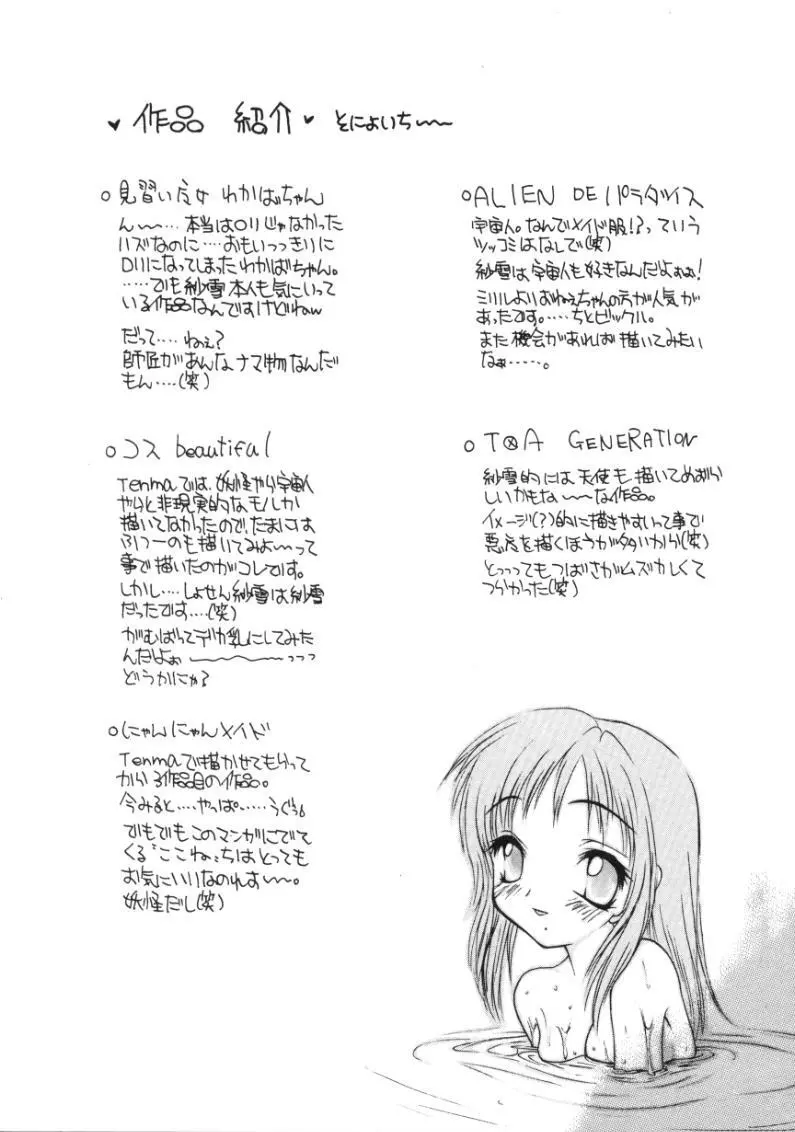 ♥ 作品 紹介 ♥ そによいち〜〜
○見習い魔女 わかばちゃん
ん〜〜‥‥本当はロリじゃなかった
ハズなのに‥‥おもいっっきりに
ロリになってしまったわかばちゃん。
‥‥‥でも紗雪本人も気にいって
いる作品なんですけどねw
だって‥‥ねぇ?
師匠があんなナマ物なんだ
もん‥‥(笑)
○コス beautiful
Tenmaでは、妖怪やら宇宙人
やらと非現実的なモノしか
描いてなかったので、たまには
ふつーのも描いてみよ〜って
事で描いたのがコレです。
しかし‥‥しょせん紗雪は紗雪
だったです‥‥(笑)
がむばってデカ乳にしてみた
んだよぉ〜〜〜〜っっっ
どうかにゃ?
○にゃんにゃんメイド
Tenmaで描かせてもらって
から3作品目の作品。
今みると‥‥やっぱ‥‥‥うぐぅ。
でもでもこのマンガにでて
くる"ここね"ちはとっても
お気にいいなのれす〜〜。
妖怪だし(笑)
○ALIEN DE パラダイス
宇宙人。なんでメイド服!?っていう
ツッコミはなしで(笑)
紗雪は宇宙人も好きなんだよぉぉ!
ミリルよりおねぇちゃんの方が人気が
あったです。‥‥‥ちとビックル。
また機会があれば描いてみたい
なぁ‥‥‥。
○T⊗A GENERATION
紗雪的には天使も描いてめずら
しいかもな〜〜な作品。
イメージ(?)的に描きやすいって事で
悪魔を描くほうが多いから(笑)
とっっってもつばさがムズカしくて
つらかった(笑)